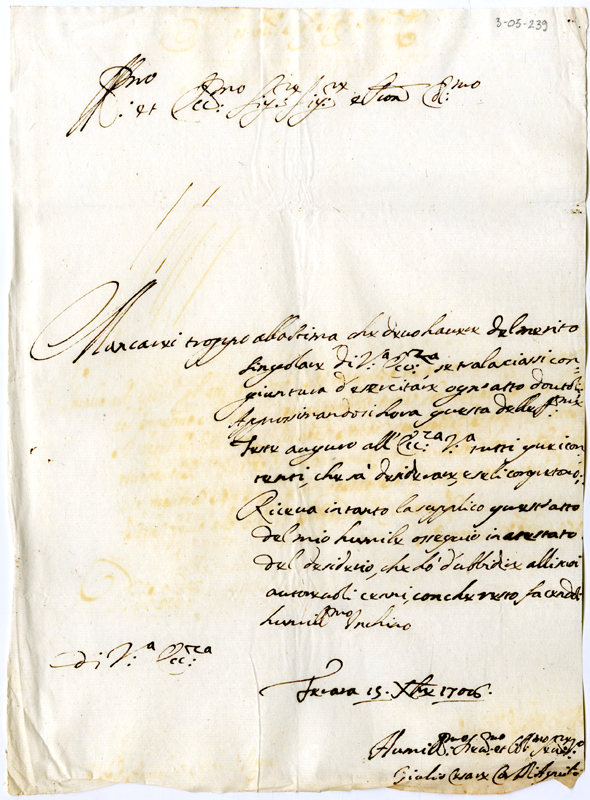 3-05-239
Ill.mo
et Ecc.mo Sig.re Sig.re et Pron Col.mo
Mancarei troppo alla stima che devo havere del merito
singolare di V.a Ecc.za, se tralasciassi con-
giuntura d'esercitare ogn'atto
Approssimandosi hora questa delle
feste auguro all'Ecc.za V.a tutti quei con-
tenti, che sà desiderare, e se li
Riceva intanto la supplico quest'atto
del mio humile ossequio in attestato
del desiderio, che hò d'ubbidire alli suoi
autorevoli cenni, con che resto facendole
humill.mo Inchino
di V.a Ecc.za
15 Xbre 1706.
Humill.mo
Giulio Cesare